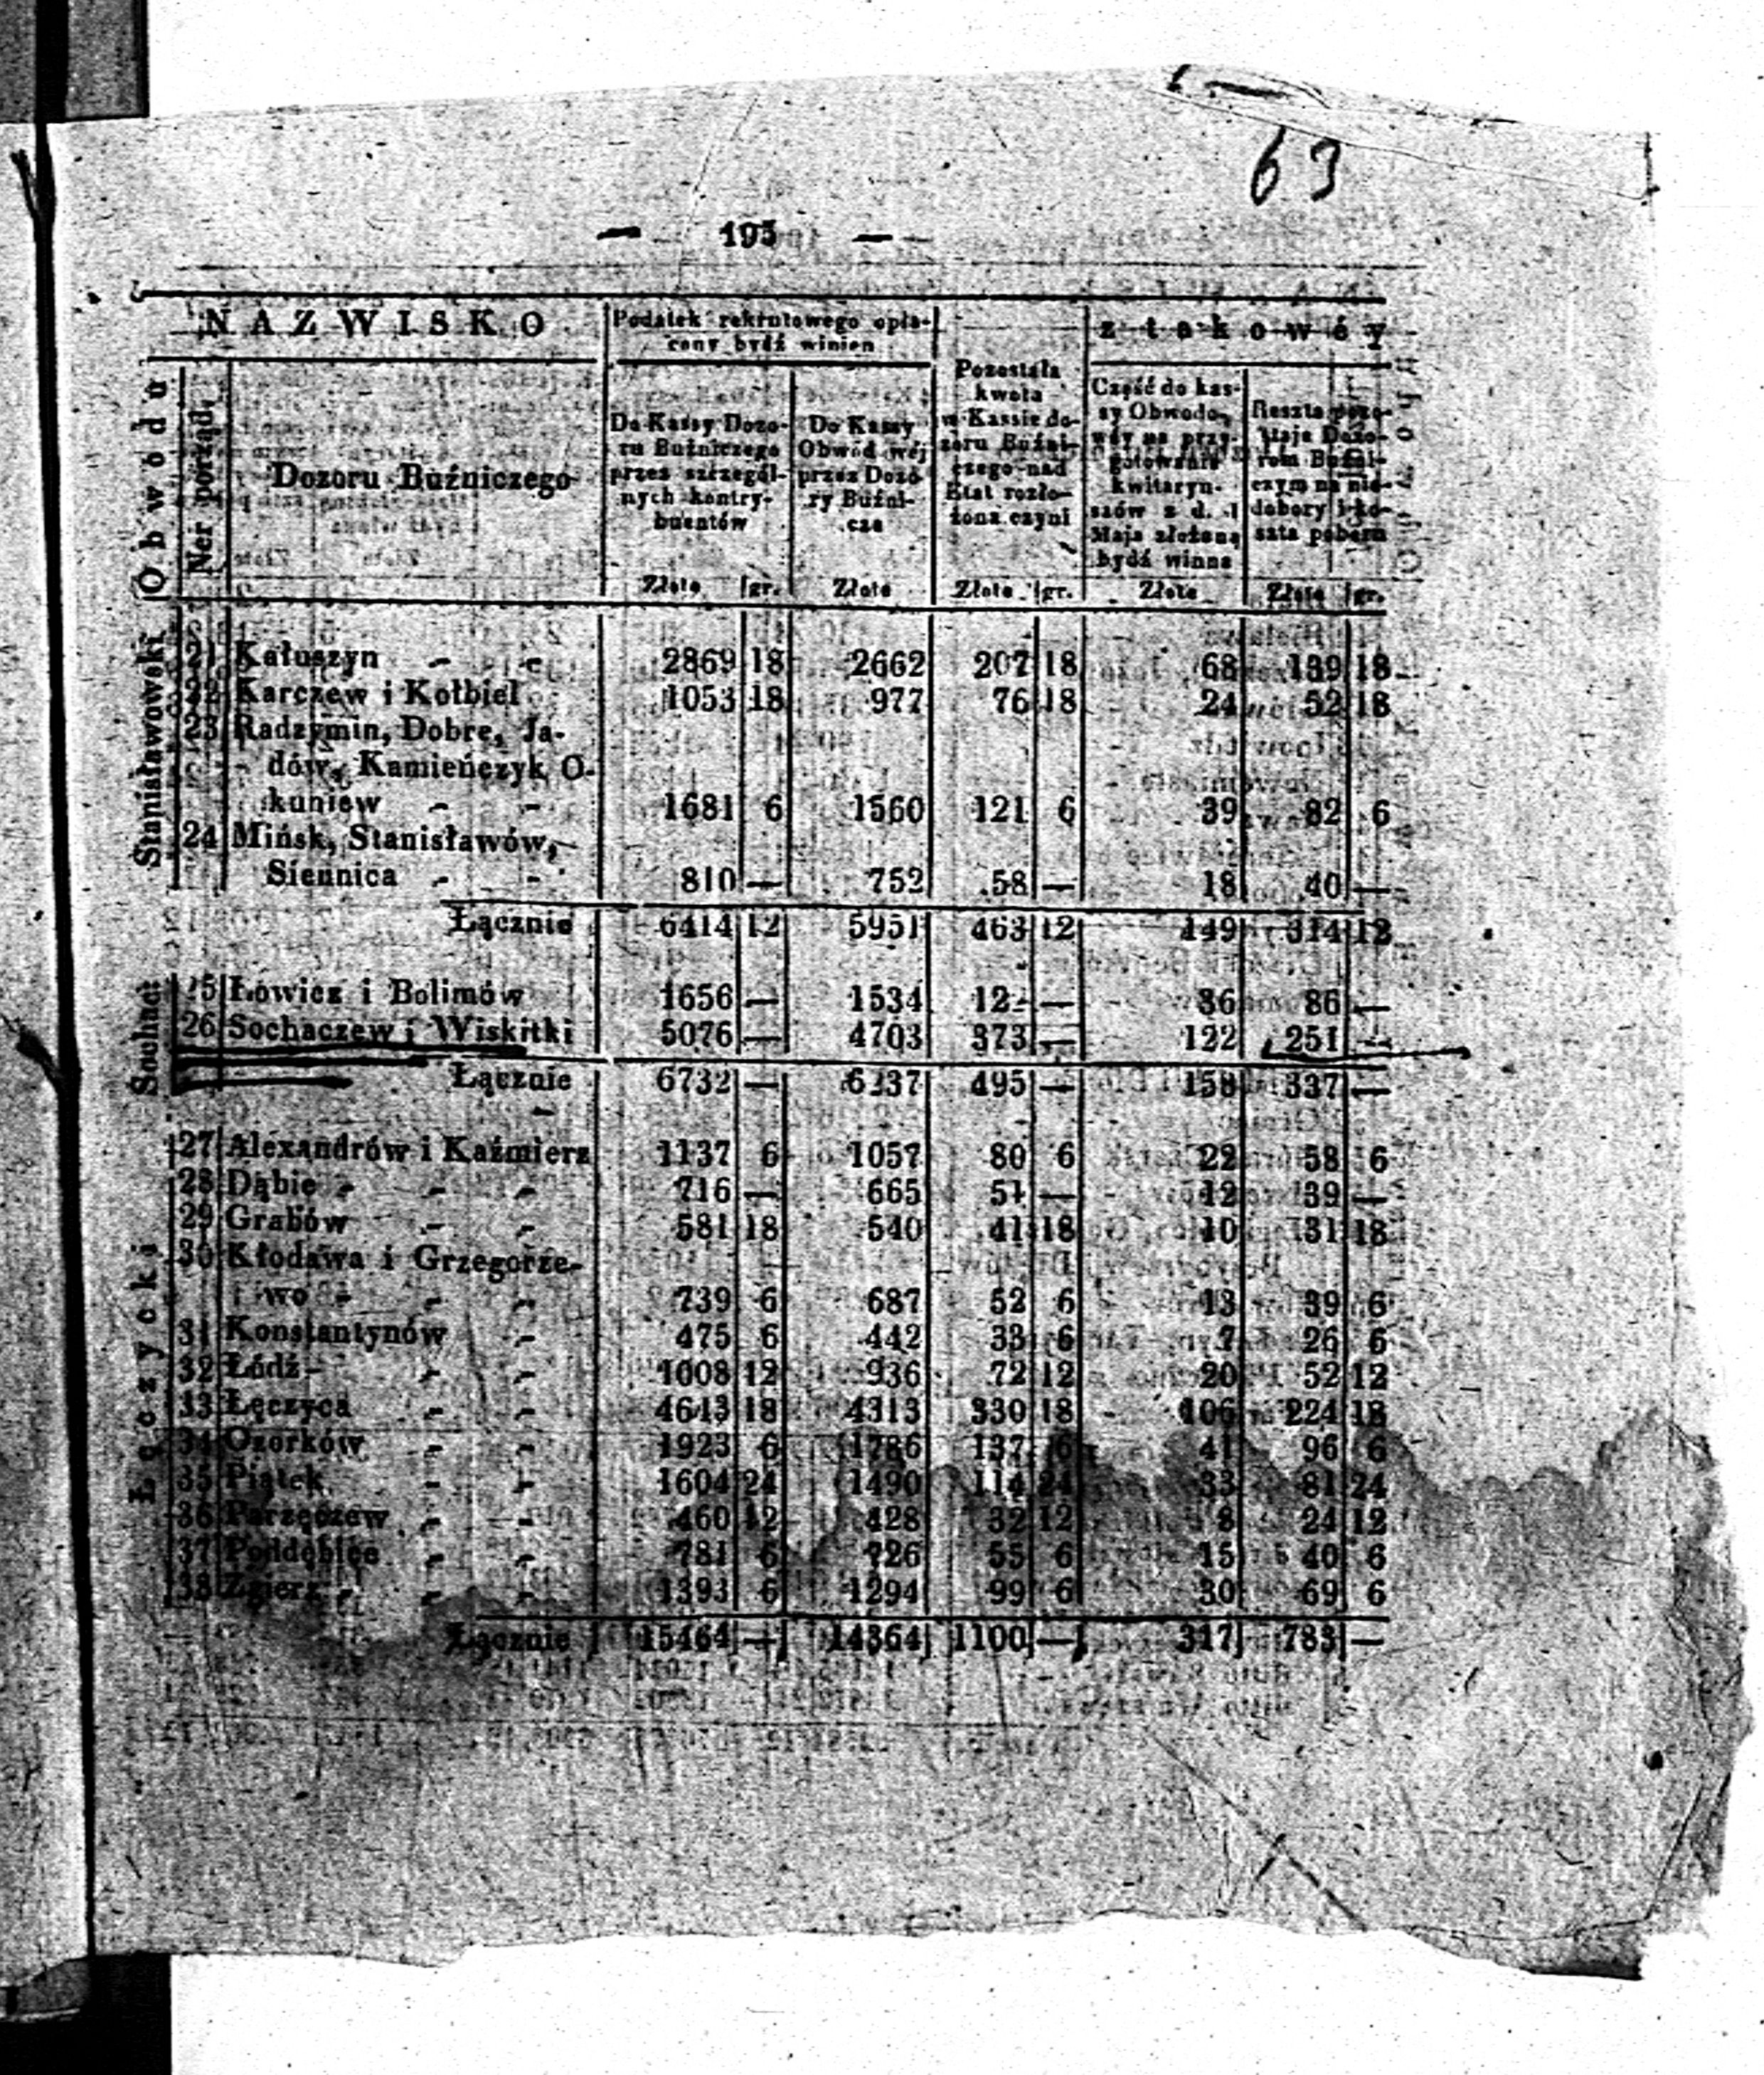 63
— 195 —
NAZWISKO
Podatek rekrutowego opła-
cony bydź winien
z takowéy
Obwodu
Ner porząd.
Dozoru Buźniczego
Do Kassy Dozo-
ru Buźniczego
przez szczegól-
nych kontry-
buentów
Do Kassy
Obwód wéj
przez Dozo-
ry Buźni-
cze
Pozostała
kwota
w Kassie do-
zoru Buźni-
czego nad
Etat rozło-
żona czyni
Część do kas-
sy Obwodo-
wéy na przy-
gotowanie
kwitaryu-
szów z d. 1
Maja złożoną
bydź winna
Reszta pozo-
staje Dozo-
rom Buźni-
czym na nie-
dobory i ko-
szta poboru
Złote gr. Złote Złote gr. Złote Złote gr.
Stanisławowski
21 Kałuszyn - - 2869 18 2662 207 18 68 139 18
22 Karczew i Kołbiel 1053 18 977 76 18 24 52 18
23 Radzymin, Dobre, Ja-
dów, Kamieńczyk, O-
kuniew - - 1681 6 1560 121 6 39 82 6
24 Mińsk, Stanisławów,
Siennica - - 810 — 752 58 — 18 40 —
Łącznie 6414 12 5951 463 12 149 314 12
Sochac:
25 Łowicz i Bolimów 1656 — 1534 12 — 36 86 —
26 Sochaczew i Wiskitki 5076 — 4703 373 — 122 251 —
Łącznie 6732 — 6237 495 — 158 337 —
Łęczycki
27 Alexandrów i Kaźmierz 1137 6 1057 80 6 22 58 6
28 Dąbie - - - 716 — 665 51 — 12 39 —
29 Grabów - - 581 18 540 41 18 10 31 18
30 Kłodawa i Grzegorze-
wo - - - 739 6 687 52 6 13 39 6
31 Konstantynów - 475 6 442 33 6 7 26 6
32 Łódź - - - 1008 12 936 72 12 20 52 12
33 Łęczyca - - 4643 18 4313 330 18 106 224 18
34 Ozorków - - 1923 6 1786 137 6 41 96 6
35 Piątek - - 1604 24 1490 114 24 33 81 24
36 Parzęczew - - 460 12 428 32 12 8 24 12
37 Poddębice - - 781 6 726 55 6 15 40 6
38 Zgierz - - - 1393 6 1294 99 6 30 69 6
Łącznie 15464 — 14364 1100 — 317 783 —